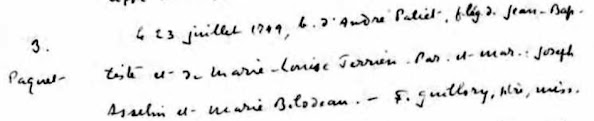 3.
Le 23 juillet 1749, b. d'André Paliet, f. lég. d. Jean-Bap-
Paquet
tiste et de Marie-Louise Terrien. Par. et mar.: Joseph
Asselin et Marie Bilodeau. — F. Guillory, ptre, miss.